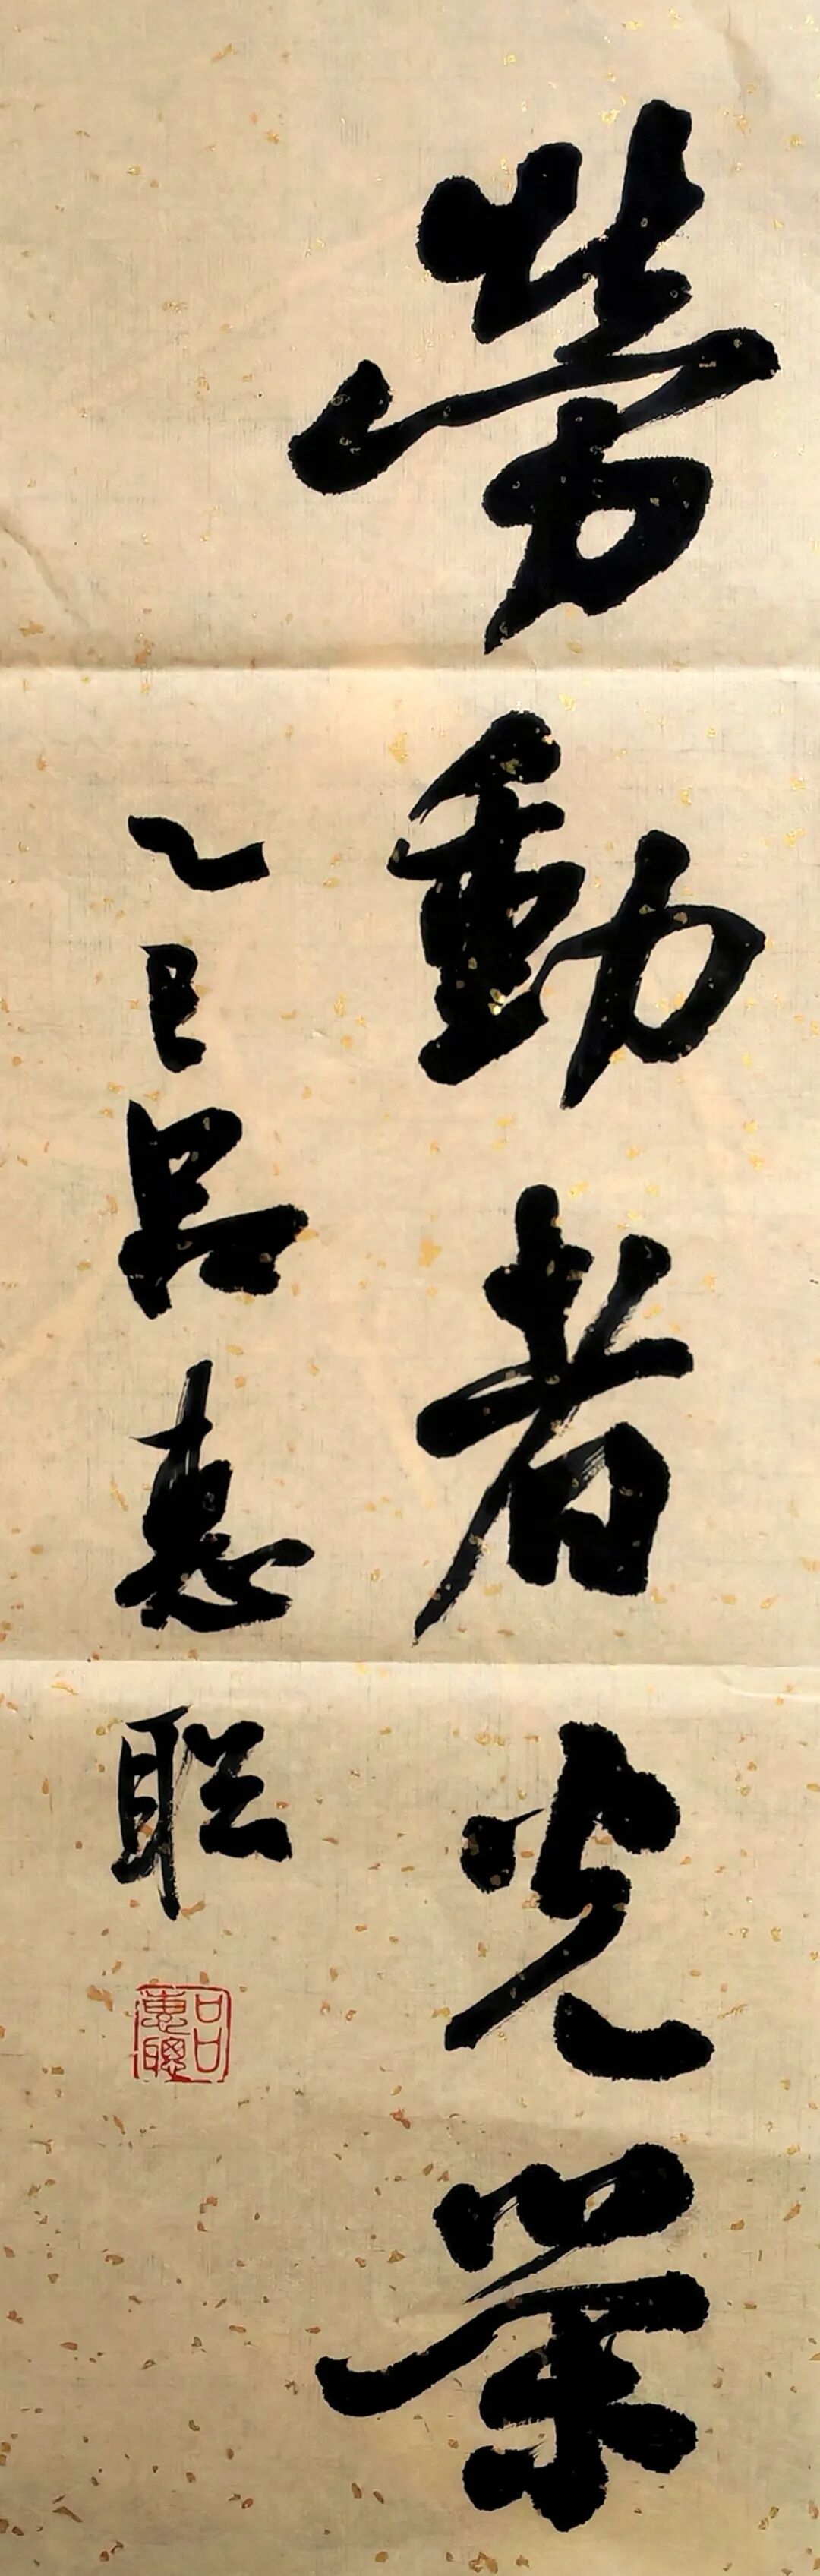 勞動者光榮
乙巳呂惠聰
呂惠聰